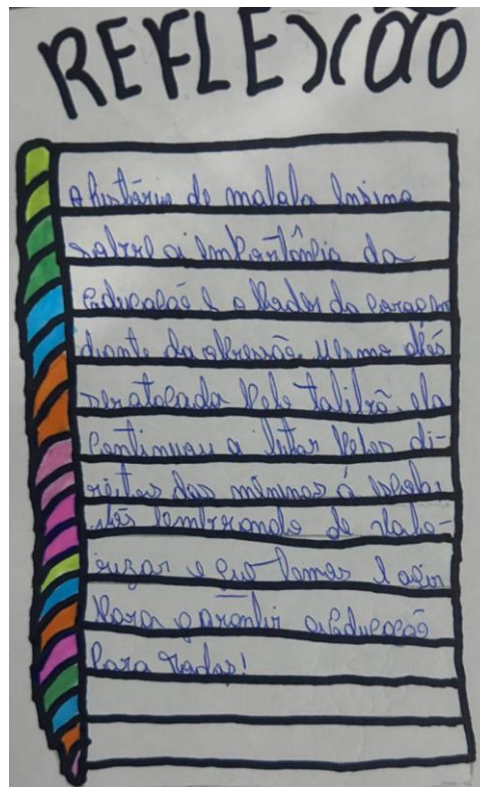 REFLEXÃO
A história de malala Ensina
sobre a importância da
Educação e o Poder da coragem
diante da opressão. Mesmo após
ser atacada Pelo talibã, ela
Continuou a lutar Pelos di-
reitos das meninas à
lembrando de valo-
rizar o que temos e agir
Para garantir a Educação
Para Todas!